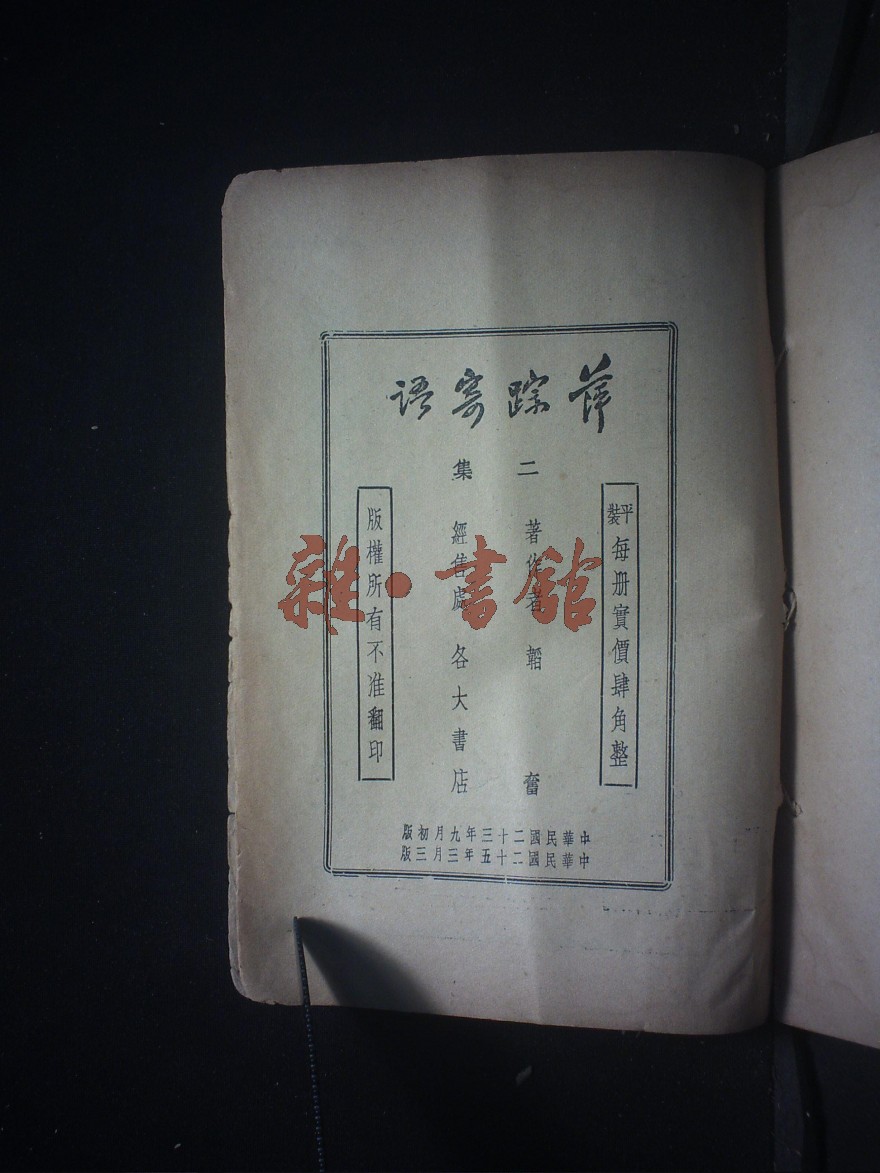 萍踪寄語
二集
平裝每册實價肆角整
著作者 韜奮
經售處 各大書店
版權所有不准翻印
中華民國二十三年九月初版
中華民國二十五年三月三版
雜·書館